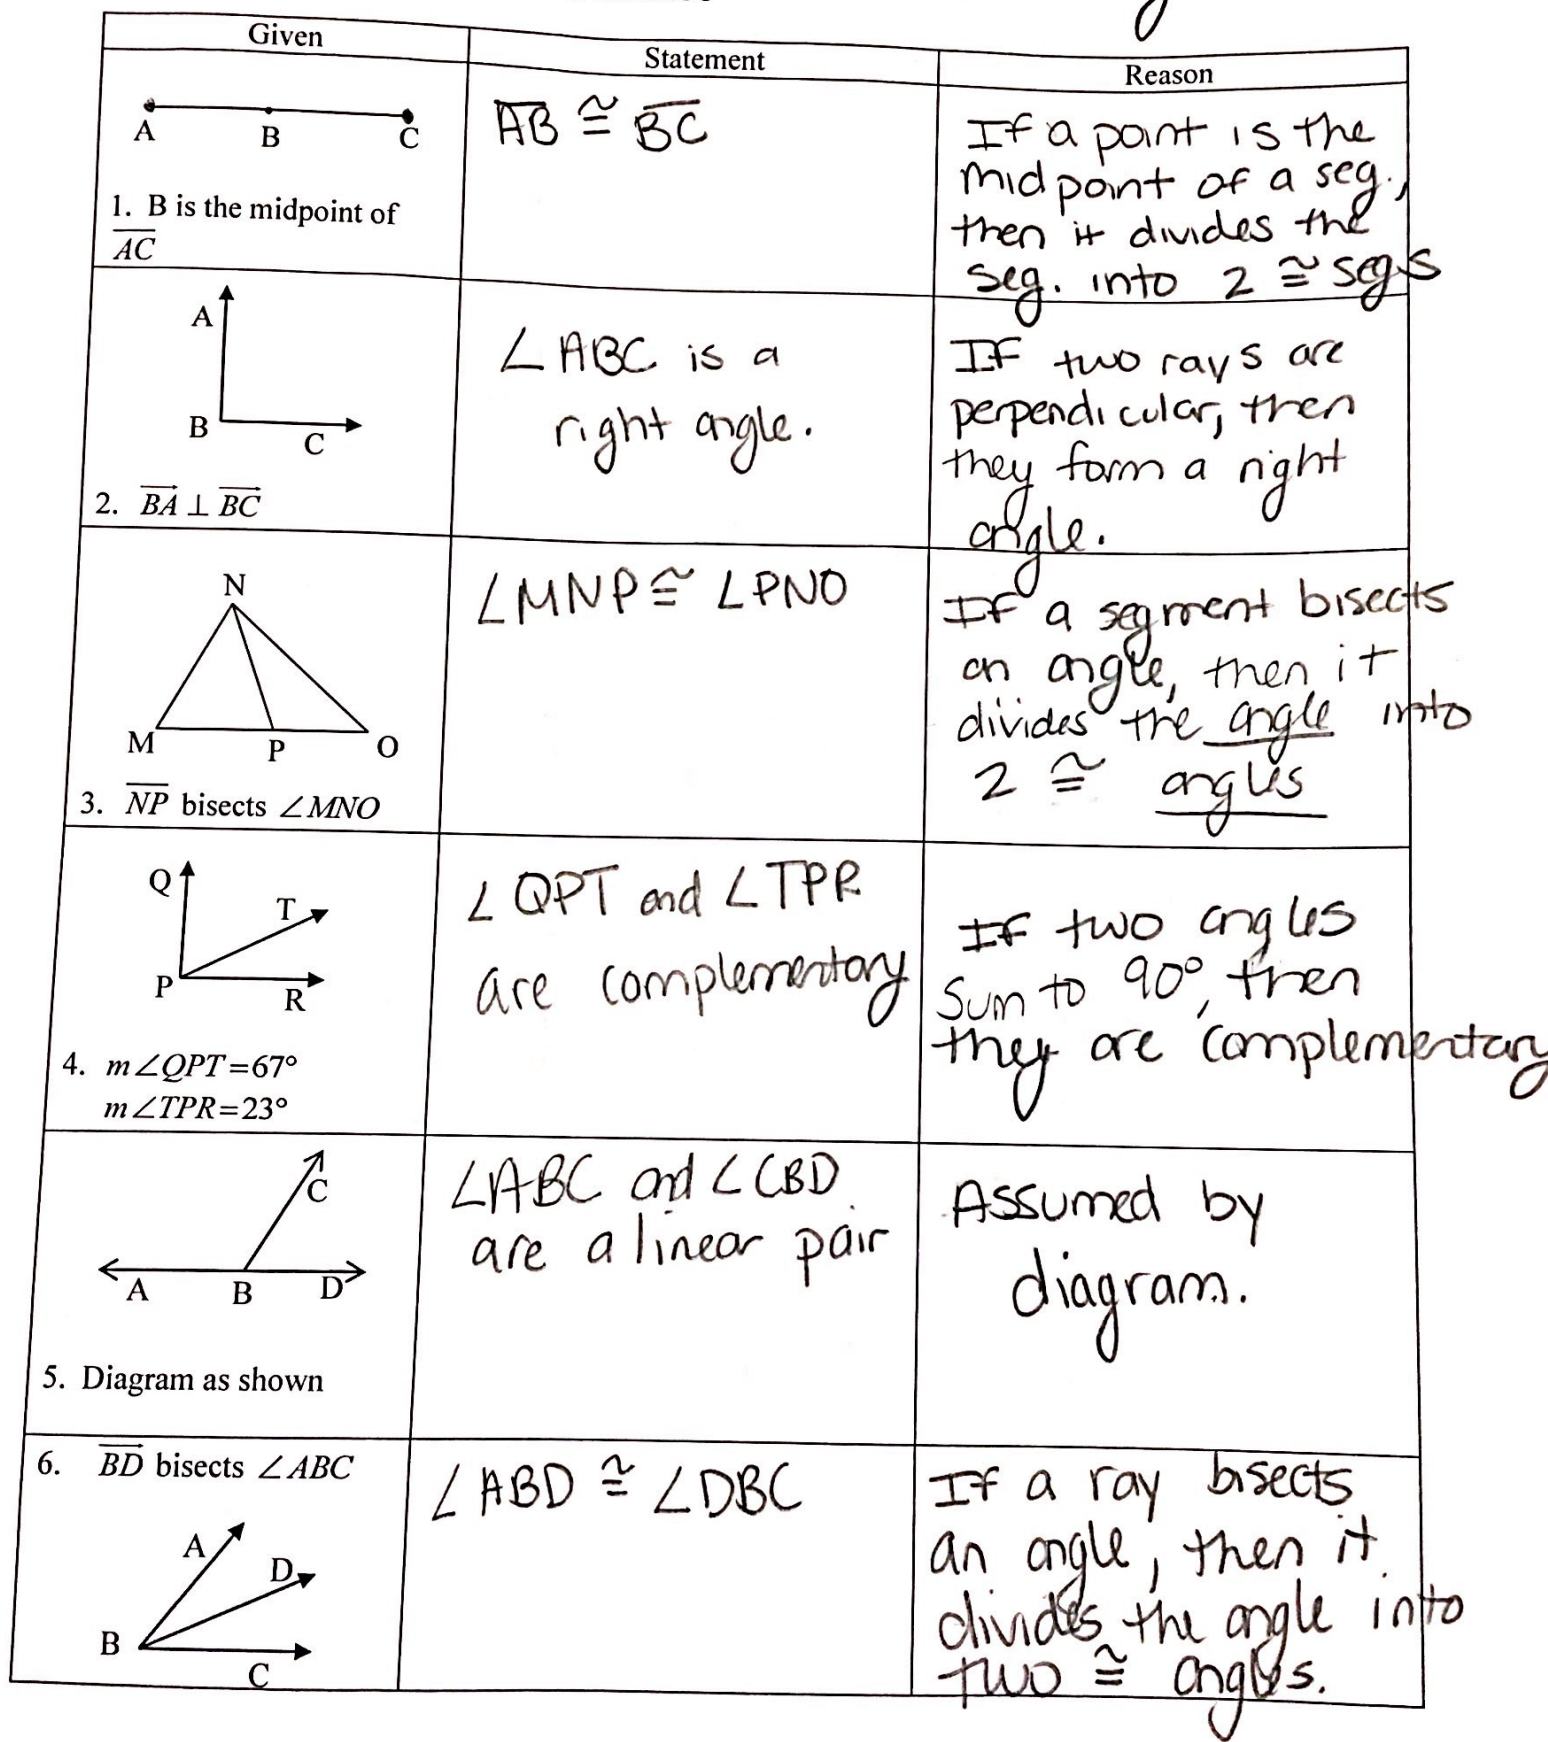 Given
Statement
Reason
A B C
1. B is the midpoint of
AC
AB ≅ BC
If a point is the
midpoint of a seg.,
then it divides the
seg. into 2 ≅ segs
A
B
C
2. BA ⊥ BC
∠ABC is a
right angle.
If two rays are
perpendicular, then
they form a right
angle.
N
M P O
3. NP bisects ∠MNO
∠MNP ≅ ∠PNO
If a segment bisects
an angle, then it
divides the angle into
2 ≅ angles
Q
T
P
R
4. m∠QPT=67°
m∠TPR=23°
∠QPT and ∠TPR
are complementary
If two angles
sum to 90°, then
they are complementary
C
A B D
5. Diagram as shown
∠ABC and ∠CBD
are a linear pair
Assumed by
diagram.
6. BD bisects ∠ABC
A
D
B
C
∠ABD ≅ ∠DBC
If a ray bisects
an angle, then it
divides the angle into
two ≅ angles.